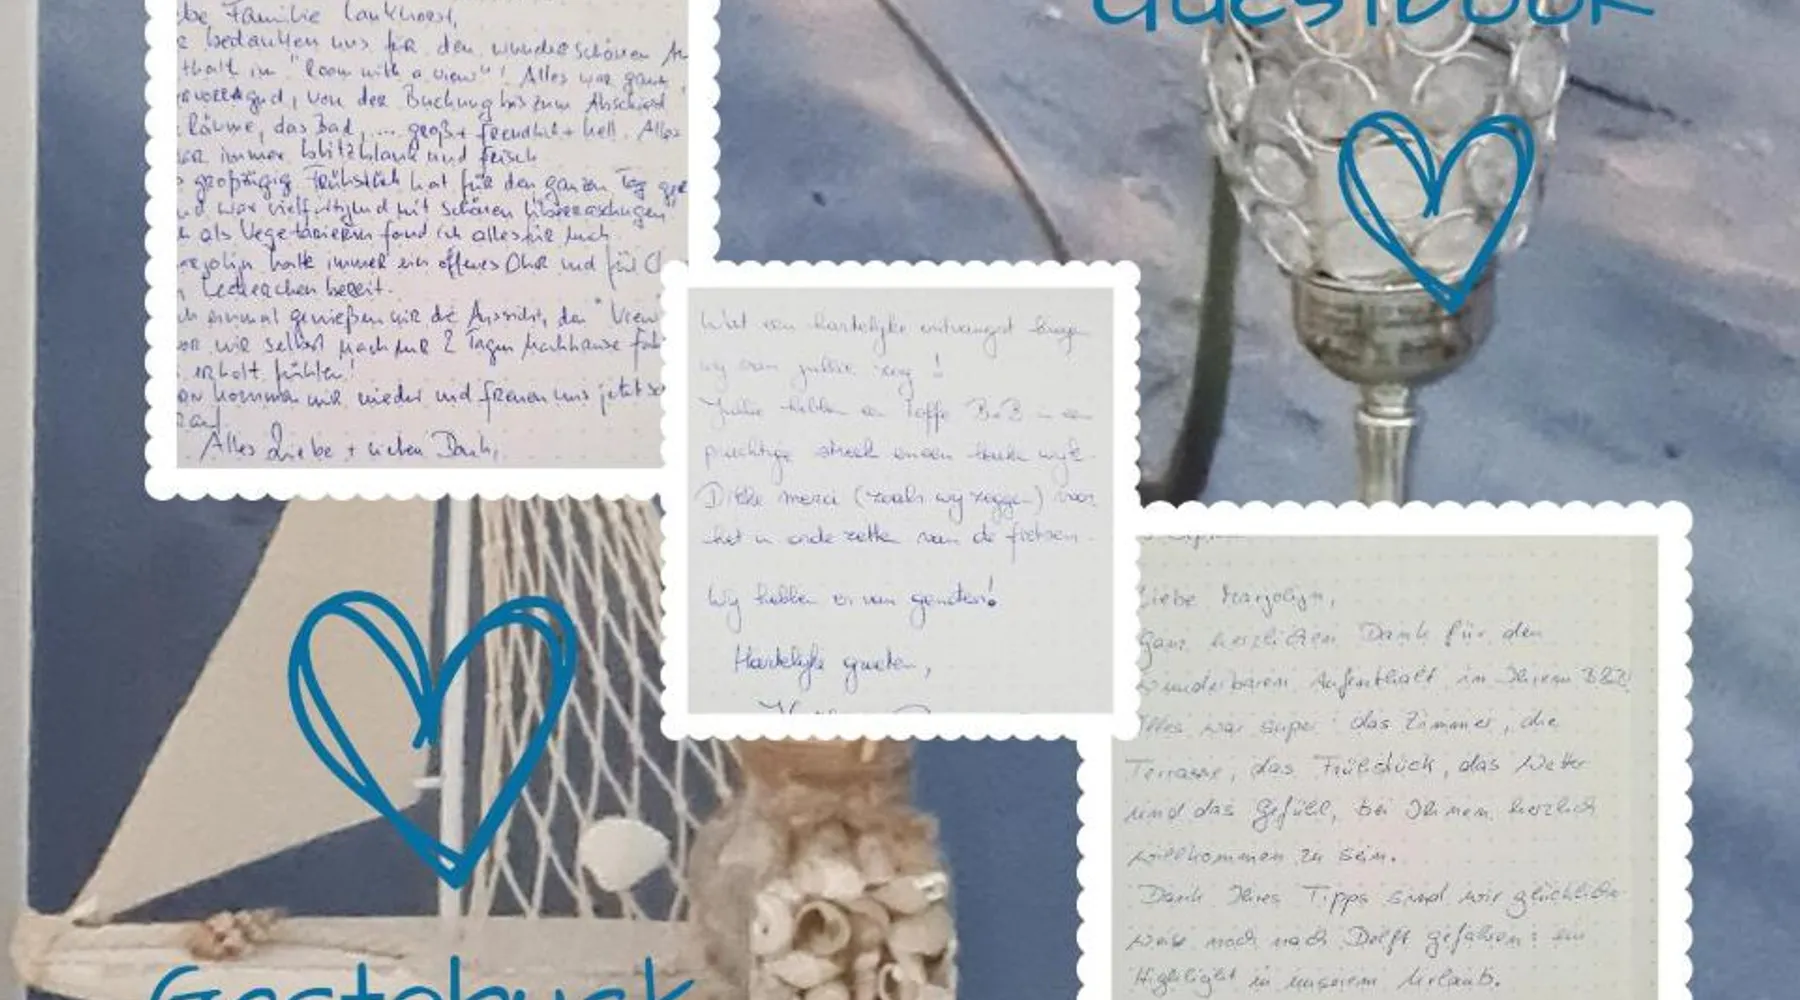 Guestbook
be Familie Lankhorst,
bedanken uns für den wunderschönen
thalt in "Room with a view"! Alles war ganz
ervorragend, von der Buchung bis zum Abschied
Räume, das Bad, ... groß + freundlich + hell. Alles
immer blitzblank und frisch
großzügig. Frühstück hat für den ganzen Tag
nd war vielfältig und mit schönen Überraschungen
als Vegetarierin fand ich alles für mich.
rjolijn hatte immer ein offenes Ohr und für
bereit.
einmal genießen wir die Aussicht, den "View
wir selbst nach nur 2 Tagen Nachhause
erholt fühlen!
kommen wir wieder und freuen uns jetzt
rauf
Alles Liebe + vielen Dank,
Wat een hartelijke ontvangst kregen
wij van jullie zeg!
Jullie hebben een toffe B&B in een
prachtige streek en een leuke wijk.
Dikke merci (zoals wij zeggen) voor
het in orde zetten van de fietsen.
Wij hebben er van genoten!
Hartelijke groeten,
Liebe Marjolijn,
Ganz herzlichen Dank für den
wunderbaren Aufenthalt in Ihrem B&B!
Alles war super: das Zimmer, die
Terrasse, das Frühstück, das Wetter
und das Gefühl, bei Ihnen herzlich
willkommen zu sein.
Dank Ihres Tipps sind wir glücklicher
weise noch nach Delft gefahren: ein
Highlight in unserem Urlaub.
Gästebuck